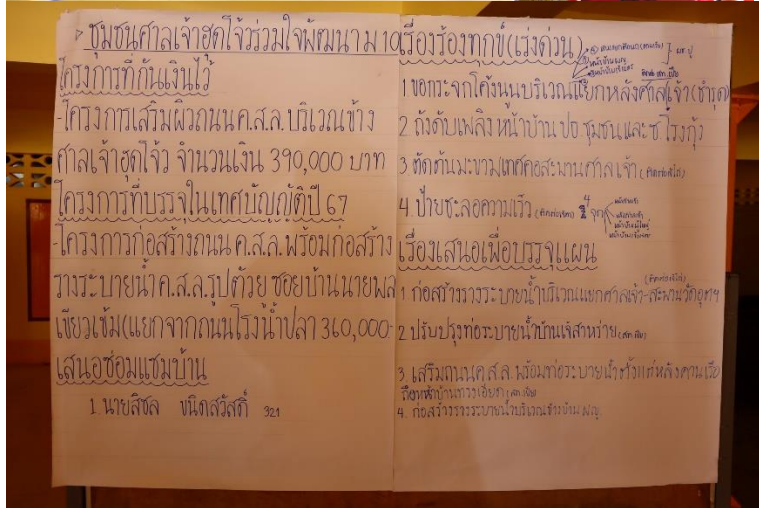 ชุมชนศาลเจ้าฮุดโจ้วร่วมใจพัฒนา ม 10
โครงการที่กันเงินไว้
-โครงการเสริมผิวถนน ค.ส.ล. บริเวณข้าง
ศาลเจ้าฮุดโจ้ว จำนวนเงิน 390,000 บาท
โครงการที่บรรจุในเทศบัญญัติปี 67
-โครงการก่อสร้างถนน ค.ส.ล. พร้อมก่อสร้าง
รางระบายน้ำ ค.ส.ล. รูปตัวย ซอยบ้านนายพล
เขียวเข้ม(แยกจากถนนโรงน้ำปลา 360,000.-
เสนอซ่อมแซมบ้าน
1. นายสิชล ขนิดสวัสดิ์ 321
เรื่องร้องทุกข์(เร่งด่วน)
1 ขอกระจกโค้งมนบริเวณแยกหลังศาลเจ้า(ชำรุด)
2 ถังดับเพลิง หน้าบ้าน ปธ ชุมชนและซ โรงกุ้ง
3 ตัดต้นมะขามเทศคอสะพานศาลเจ้า
4. ป้ายชะลอความเร็ว 4 จุด
เรื่องเสนอเพื่อบรรจุแผน
1 ก่อสร้างรางระบายน้ำบริเวณแยกศาลเจ้า-สะพานวัดอุตฯ
2 ปรับปรุงท่อระบายน้ำบ้านเจ๊สำหร่าย
3 เสริมถนน ค.ส.ล. พร้อมท่อระบายน้ำ ตั้งแต่หลังคานเรือ
ถึงหน้าบ้าน
4. ก่อสร้างรางระบายน้ำบริเวณข้างบ้าน